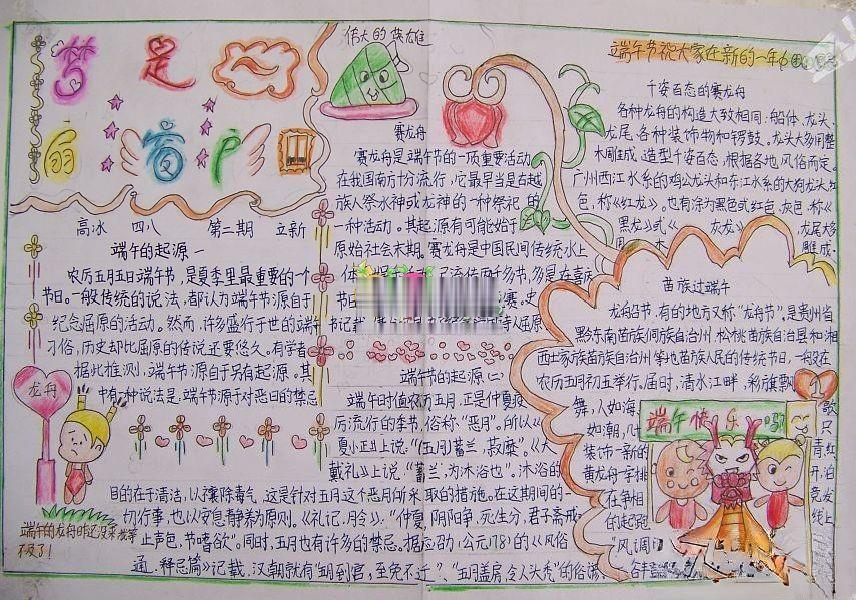 梦是
扇窗户
高冰 四八 第二期 立新
端午的起源一
农历五月五日端午节，是夏季里最重要的一个
节日。一般传统的说法，都认为端午节源自于
纪念屈原的活动。然而，许多盛行于世的端午
习俗，历史却比屈原的传说还要悠久。有学者
据此推测，端午节源自于另有起源。其
中有一种说法是，端午节源于对恶日的禁忌
龙舟
目的在于清洁，以禳除毒气，这是针对五月这个恶月所采取的措施。在这期间的一
切行事，也以安息静养为原则。《礼记·月令》：“仲夏，阴阳争，死生分，君子斋戒
止声色，节嗜欲”。同时，五月也有许多的禁忌。据应劭（公元178）的《风俗
通·释忌篇》记载，汉朝就有“五月到官，至免不迁”、“五月盖房，令人头秃”的俗谚
端午的龙舟咋还没来
不及了！
伟大的英雄
赛龙舟
赛龙舟是端午节的一项重要活动，
在我国南方十分流行，它最早当是古越
族人祭水神或龙神的一种祭祀的
一种活动。其起源有可能始于
原始社会末期。赛龙舟是中国民间传统水上
端午节的起源（二）
端午时值农历五月，正是仲夏疫
厉流行的季节，俗称“恶月”。所以《
夏小正》上说，“（五月）蓄兰，菽糜”。《大
戴礼》上说，“蓄兰，为沐浴也”。沐浴的
端午节祝大家在新的一年
千姿百态的赛龙舟
各种龙舟的构造大致相同：船体、龙头、
龙尾、各种装饰物和锣鼓。龙头大多用整
木雕成，造型千姿百态，根据各地风俗而定。
广州西江水系的鸡公龙头和东江水系的大狗龙头，红
色，称《红龙》。也有涂为黑色或红色、灰色，称《
黑龙》或《灰龙》 龙尾多
雕成。
苗族过端午
龙船节，有的地方又称“龙舟节”，是贵州省
黔东南苗族侗族自治州、松桃苗族自治县和湘
西土家族苗族自治州等地苗族人民的传统节日，一般在
农历五月初五举行，届时，清水江畔，彩旗飘
舞，人如海，歌
如潮，几十只
装饰一新的青、红
黄龙舟一字排开，泊
在争相竞发
的起跑线上
“风调
端午快乐